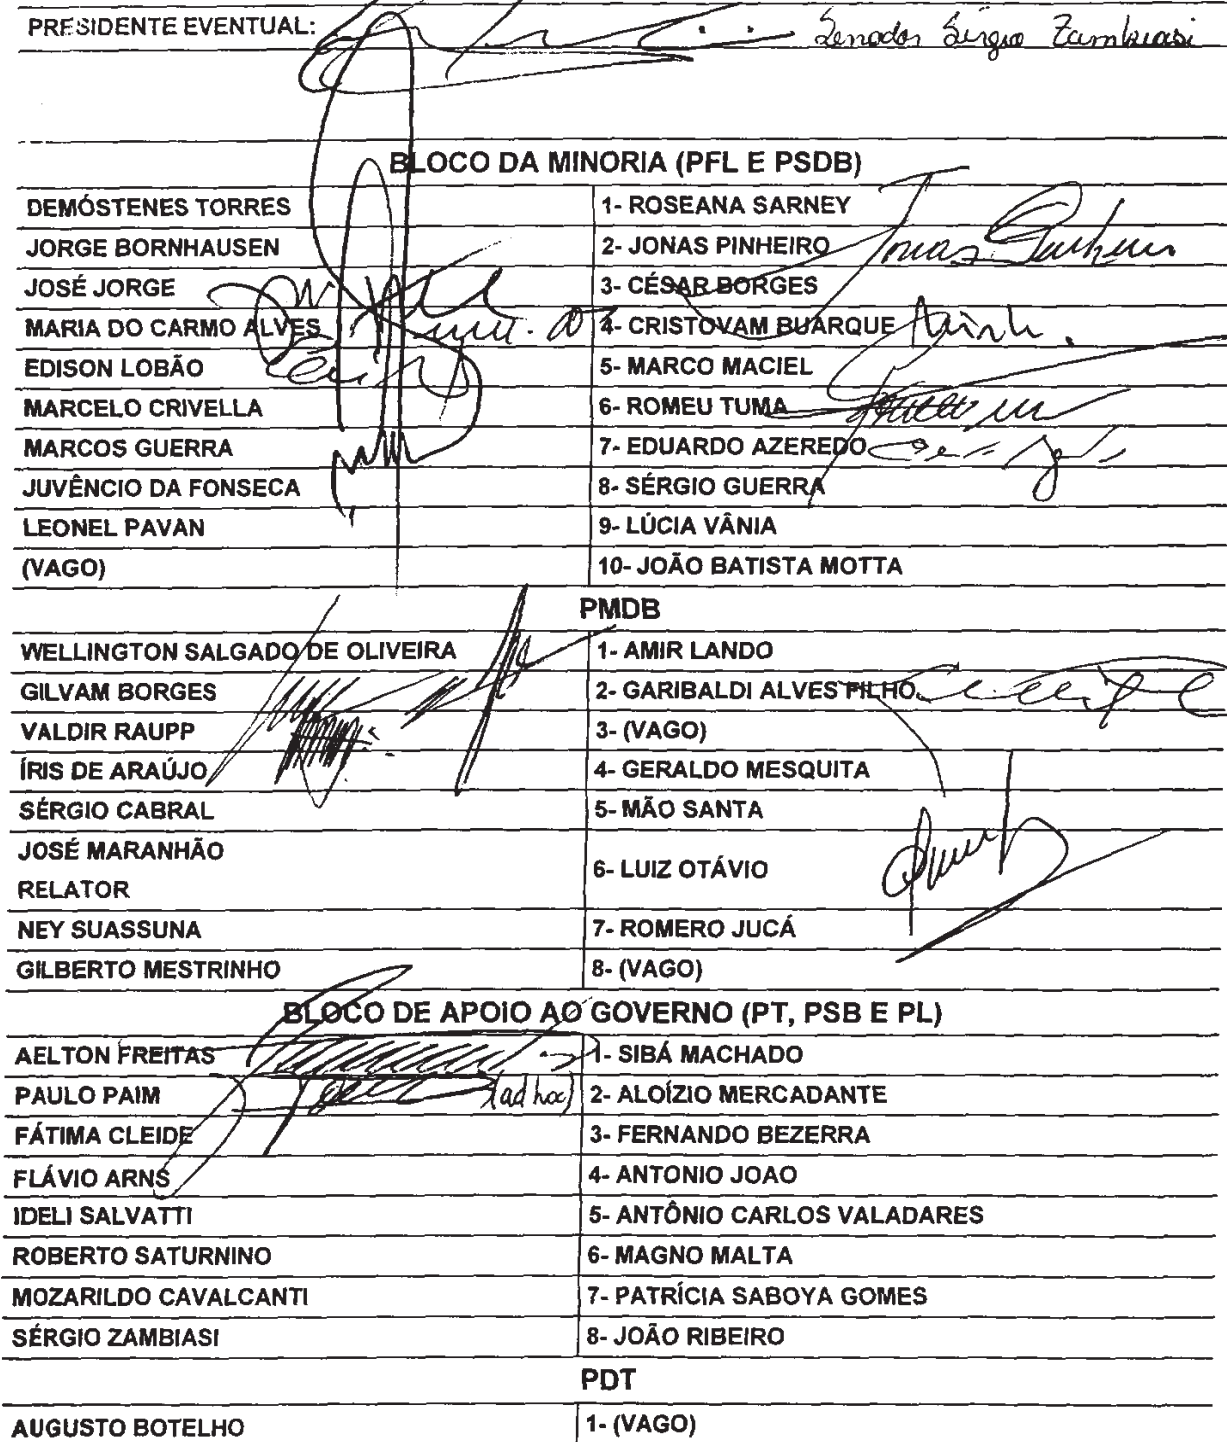 PRESIDENTE EVENTUAL: Senador Sérgio Zambiasi
BLOCO DA MINORIA (PFL E PSDB)
DEMÓSTENES TORRES 1- ROSEANA SARNEY
JORGE BORNHAUSEN 2- JONAS PINHEIRO Jonas Pinheiro
JOSÉ JORGE 3- CÉSAR BORGES
MARIA DO CARMO ALVES 4- CRISTOVAM BUARQUE
EDISON LOBÃO 5- MARCO MACIEL
MARCELO CRIVELLA 6- ROMEU TUMA
MARCOS GUERRA 7- EDUARDO AZEREDO
JUVÊNCIO DA FONSECA 8- SÉRGIO GUERRA
LEONEL PAVAN 9- LÚCIA VÂNIA
(VAGO) 10- JOÃO BATISTA MOTTA
PMDB
WELLINGTON SALGADO DE OLIVEIRA 1- AMIR LANDO
GILVAM BORGES 2- GARIBALDI ALVES FILHO
VALDIR RAUPP 3- (VAGO)
ÍRIS DE ARAÚJO 4- GERALDO MESQUITA
SÉRGIO CABRAL 5- MÃO SANTA
JOSÉ MARANHÃO
RELATOR 6- LUIZ OTÁVIO
NEY SUASSUNA 7- ROMERO JUCÁ
GILBERTO MESTRINHO 8- (VAGO)
BLOCO DE APOIO AO GOVERNO (PT, PSB E PL)
AELTON FREITAS 1- SIBÁ MACHADO
PAULO PAIM (ad hoc) 2- ALOÍZIO MERCADANTE
FÁTIMA CLEIDE 3- FERNANDO BEZERRA
FLÁVIO ARNS 4- ANTONIO JOAO
IDELI SALVATTI 5- ANTÔNIO CARLOS VALADARES
ROBERTO SATURNINO 6- MAGNO MALTA
MOZARILDO CAVALCANTI 7- PATRÍCIA SABOYA GOMES
SÉRGIO ZAMBIASI 8- JOÃO RIBEIRO
PDT
AUGUSTO BOTELHO 1- (VAGO)